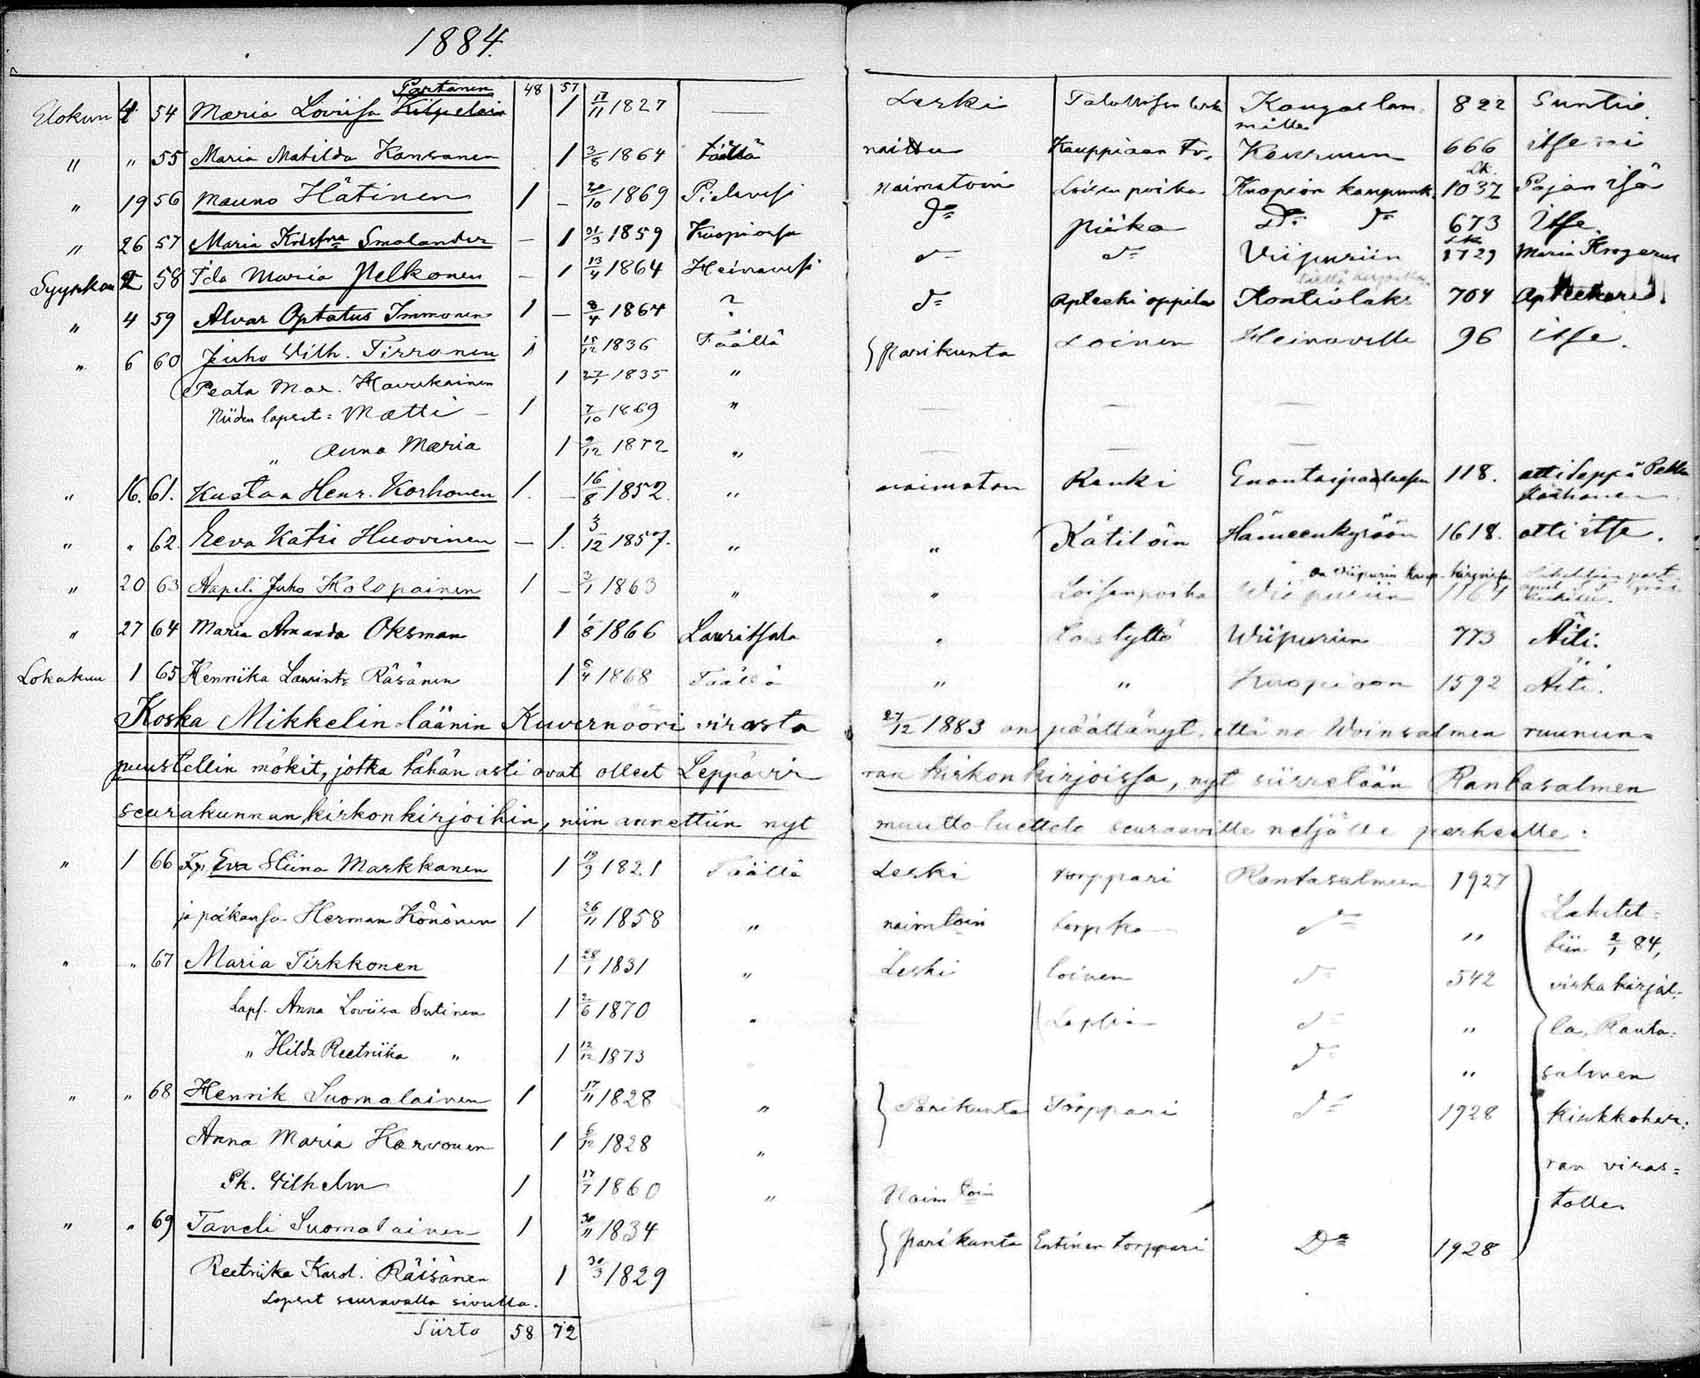 1884.
Partanen 48 57
Elokuu 4 54 Maria Loviisa Kilpeläin 1 17/11 1827 — Leski Talollisen leski Kangaslammille 822 Suntio.
" " 55 Maria Matilda Kansanen 1 3/8 1864 täällä naittu Kauppiaan 666 itse
" 19 56 Mauno Hätinen 1 — 20/10 1869 Pielavesi naimatoin Loisen poika Kuopion kaupunk. 1037 Pajari isä
" 26 57 Maria Kristina Smolander — 1 21/3 1859 Kuopiossa Do Piika Do Do 673 Itse
Syyskuu 2 58 Ida Maria Pelkonen — 1 13/4 1864 Heinävesi Do Do Viipuriin 1729 Maria Krogerus
" 4 59 Alvar Optatus Immonen 1 — 8/4 1864 ? Do Apteekioppilas Kontiolaks 704 Apteekari
" 6 60 Juho Vilh. Tirronen 1 15/12 1836 Täällä } Parikunta Loinen Heinäville 96 itse.
Peata Mar. Havukainen 1 27/1 1835 "
Niiden lapset: Matti — 1 7/10 1869 " — — —
" Anna Maria 1 9/12 1872 " — —
" 16. 61. Kustaa Henr. Korhonen 1. — 16/8 1852. " naimaton Renki 118. otti Seppä Pekka
" " 62. Eeva Katri Huovinen — 1. 3/12 1857. " " Kätilöin Hämeenkyröön 1618. otti itse.
" 20 63 Aapeli Juho Kolopainen 1 — 3/1 1863 " " Loisenpoika Wiipuriin
" 27 64 Maria Amanda Oksman 1 1/8 1866 Lauritsala " Lois tyttö Wiipuriin 773 Äiti.
Lokakuu 1 65 Hennika Laurint: Räsänen 1 6/4 1868 Täällä " " Kuopioon 1592 Äiti.
Koska Mikkelin läänin Kuvernööri virasto 27/12 1883 on päättänyt, että ne Woinsalmen ruunun=
puustellin mökit, jotka tähän asti ovat olleet Leppävir ran kirkonkirjoissa, nyt siirretään Rantasalmen
seurakunnan kirkonkirjoihin, niin annettiin nyt muutto luettelo seuraaville neljälle perheelle:
" 1 66 Eva Stiina Markkanen 1 19/9 1821 Täällä Leski torppari Rantasalmeen 1927
ja poikansa Herman Könönen 1 26/11 1858 " naimtoin torp ka Do " Lähetet=
" " 67 Maria Tirkkonen 1 28/1 1831 " Leski loinen Do 542 tiin 2/1 84,
laps. Anna Loviisa Sutinen 1 2/6 1870 " Lapsia Do " virkakirjal=
" Hilda Reetriika " 1 12/12 1873 " Do " la, Ranta=
" " 68 Henrik Suomalainen 1 17/11 1828 " } Parikunta Torppari Do 1928 salmen
Anna Maria Karvonen 1 6/12 1828 " kirkkoher=
Pk. Vilhelm 1 17/7 1860 " Naimtoin ran viras=
" " 69 Taneli Suomalainen 1 30/11 1834 } parikunta Entinen torppari Do 1928 tolle.
Reetriika Karol. Räisänen 1 30/3 1829
Lapset seuravalla sivulla.
Siirto 58 72